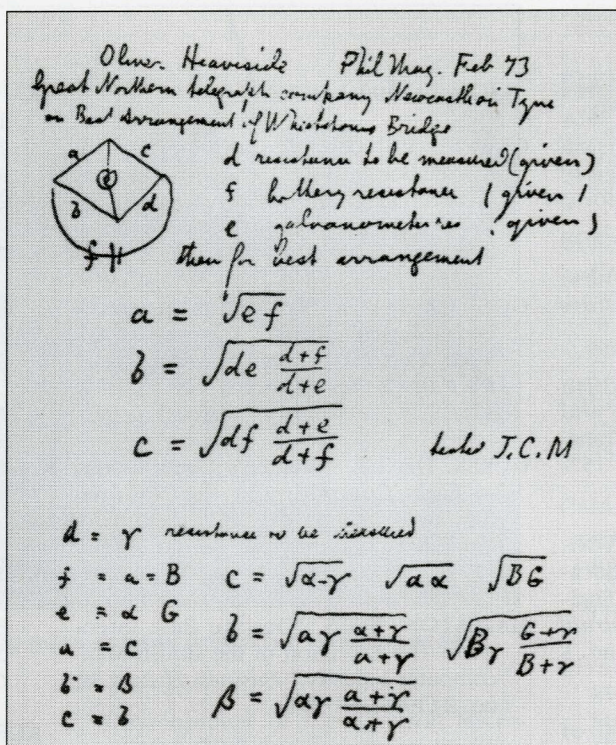 Oliver Heaviside Phil Mag. Feb 73
Great Northern telegraph company Newcastle on Tyne
on Best arrangement of Wheatstones Bridge
a c
e
b d
f
d resistance to be measured (given)
f battery resistance (given)
e galvanometer res (given)
then for best arrangement
a = √ef
b = √de d+f/d+e
c = √df d+e/d+f J.C.M
d = γ resistance to be measured
f = a = B c = √α-γ √aα √BG
e = α G
a = c b = √aγ α+γ/a+γ √Bγ G+γ/B+γ
b = β
c = b β = √αγ a+γ/α+γ